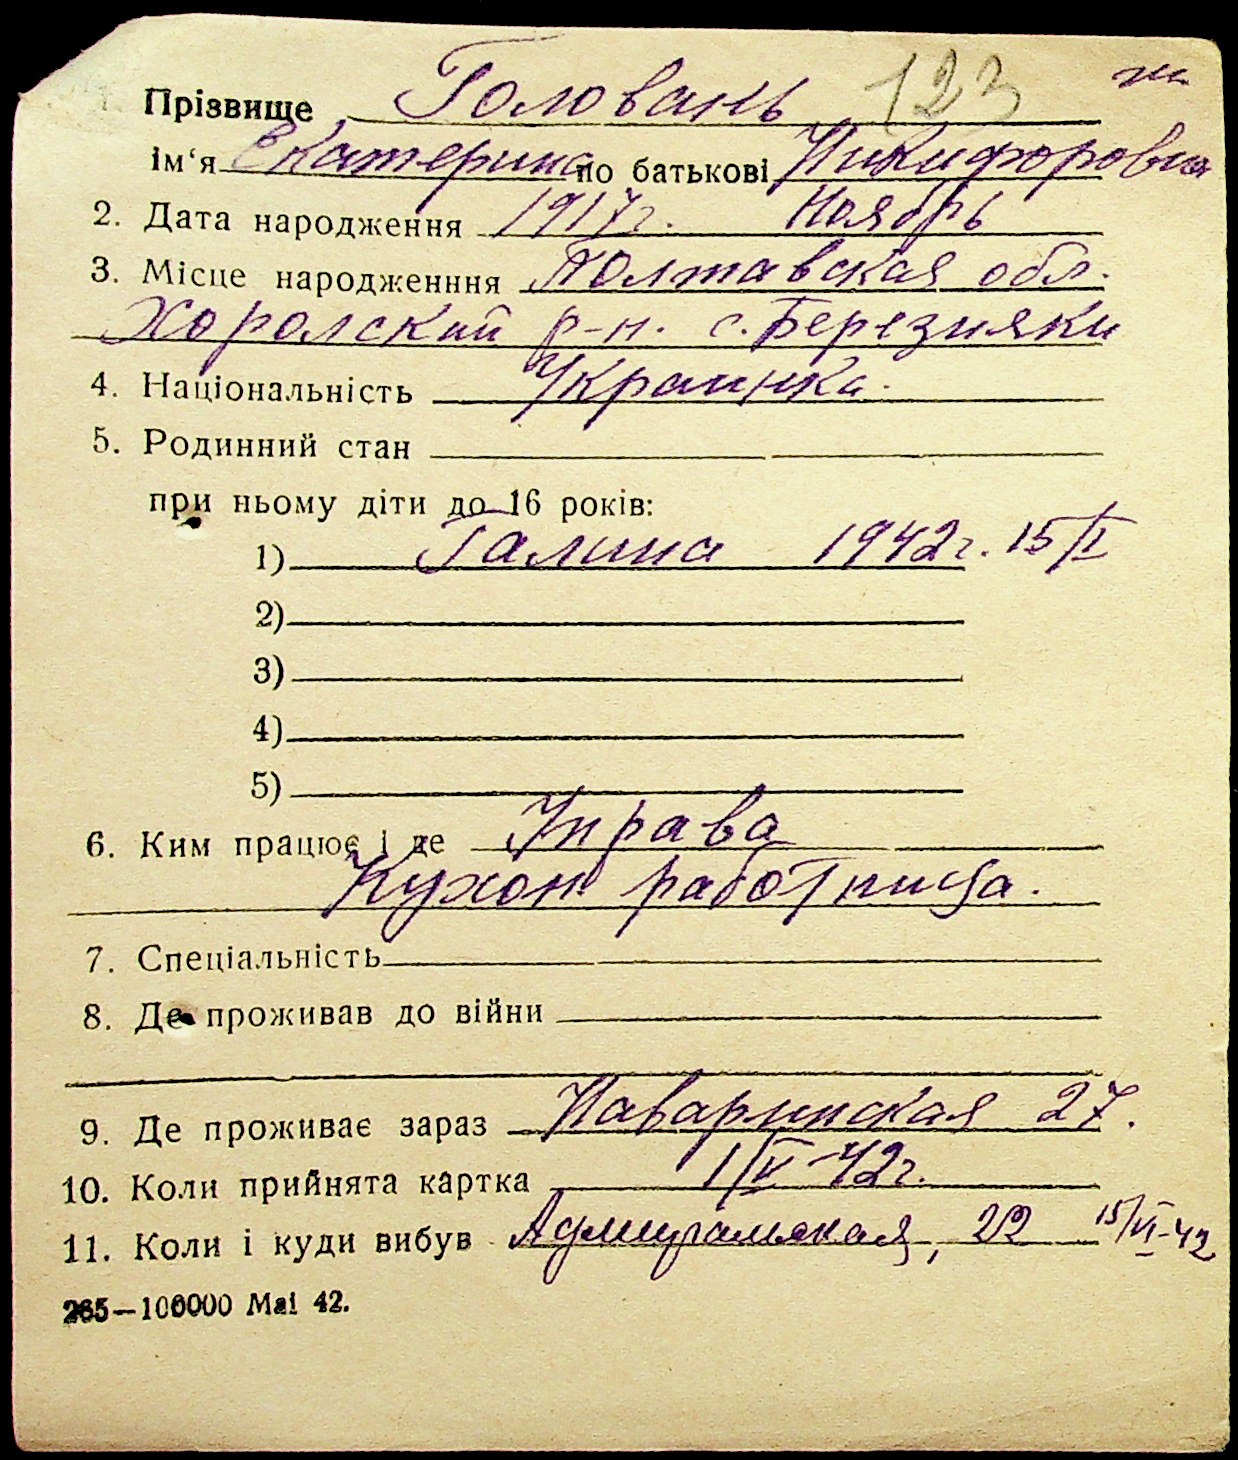 123 ж
1. Прізвище Головань
ім‘я Екатерина по батькові Никифоровна
2. Дата народження 1917г. Ноябрь
3. Місце народженння Полтавская обл.
Хоролский р-н. с. Березняки
4. Національність Украинка.
5. Родинний стан
при ньому діти до 16 років:
1) Галина 1942г. 15/I
2)
3)
4)
5)
6. Ким працює і де Управа
Кухон работница.
7. Спеціальність
8. Де проживав до війни
9. Де проживає зараз Наваринская 27.
10. Коли прийнята картка 1/V-42г.
11. Коли і куди вибув Адмиральская, 22 15/VI-42
265—100000 Маі 42.